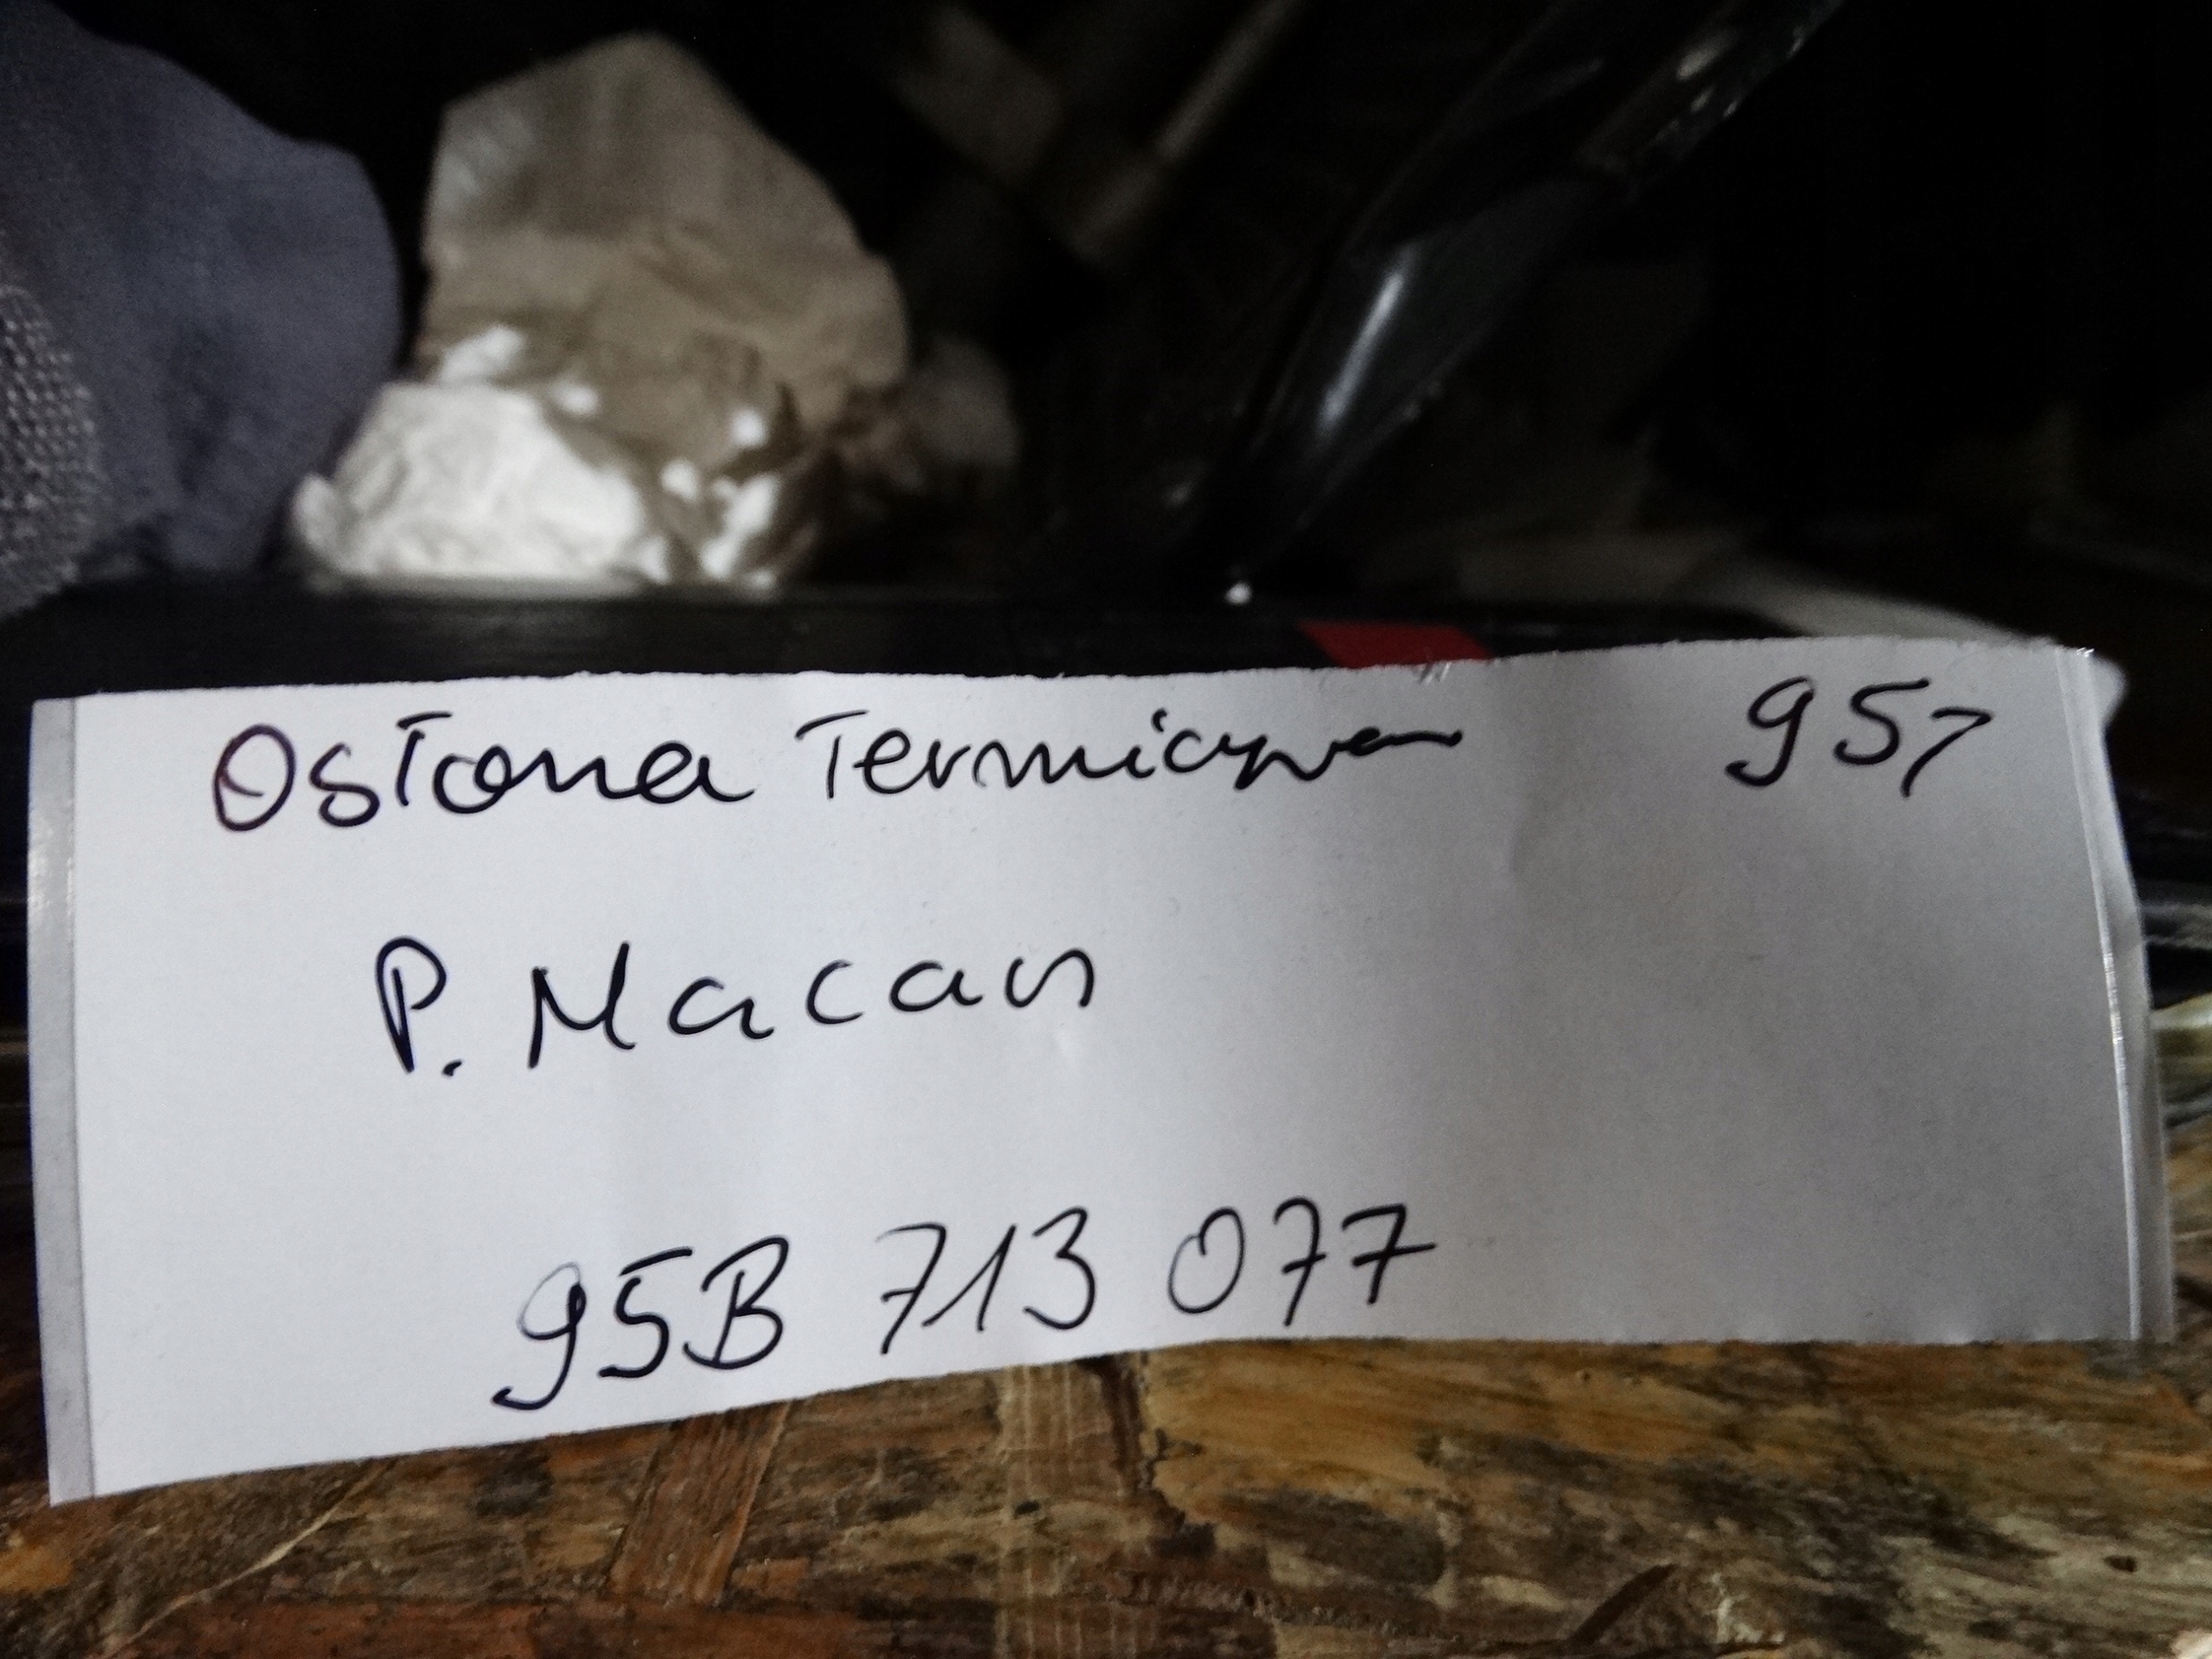 Osłona Termiczna 957
P. Macan
95B 713 077